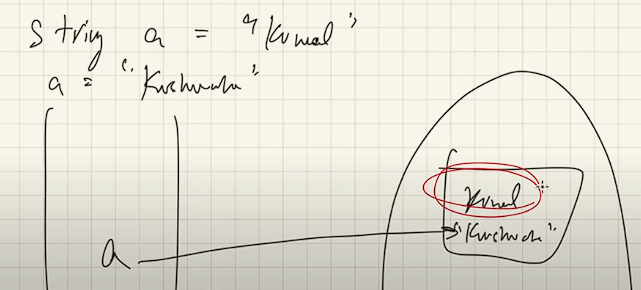 String a = "Kunal"
a = "Kushwaha"
Kunal
"Kushwaha"
a